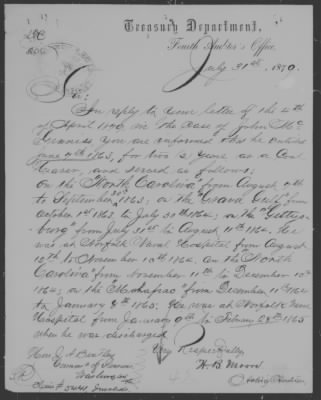 Treasury Department,
Fourth Auditor's Office.
July 31st, 1890.
Sir:
In reply to your letter of the 4th
of April 1890 in the case of John Mc
Ginniss you are informed that he enlisted
June 4th 1863, for two 2 years as a Coal
Heaver, and served as follows;
On the North Carolina from August
to September 30th 1863; on the Grand Gulf from
October 1st 1863 to July 30th 1864; on the "Gettys-
burg" from July 31st to August 11th 1864. He
was at Norfolk Naval Hospital from August
12th to November 10th 1864; on the "North
Carolina" from November 11th to December 10th
1864; on the from December 11th 1864
to January 8th 1865. He was at Norfolk Naval
Hospital from January 9th to February 28th 1865
when he was discharged
Very Respectfully,
H. B. Moore
Acting Auditor
Hon.
Comm'r of Pensions
Washington
Claim No 5441